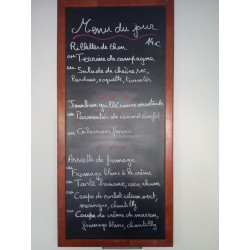 Menu du jour
14€
Rillettes de thon
ou Terrine de campagne
ou Salade de chèvre sec,
lardons, roquette, tomates
Jambon grillé sauce moutarde
ou Parmentier de canard confit
ou Calamars farcis
Assiette de fromage
ou Fromage blanc à la crème
ou Tarte banane, coco, rhum
ou Coupe de sorbet citron vert,
meringue, chantilly
ou Coupe de crème de marron,
fromage blanc, chantilly